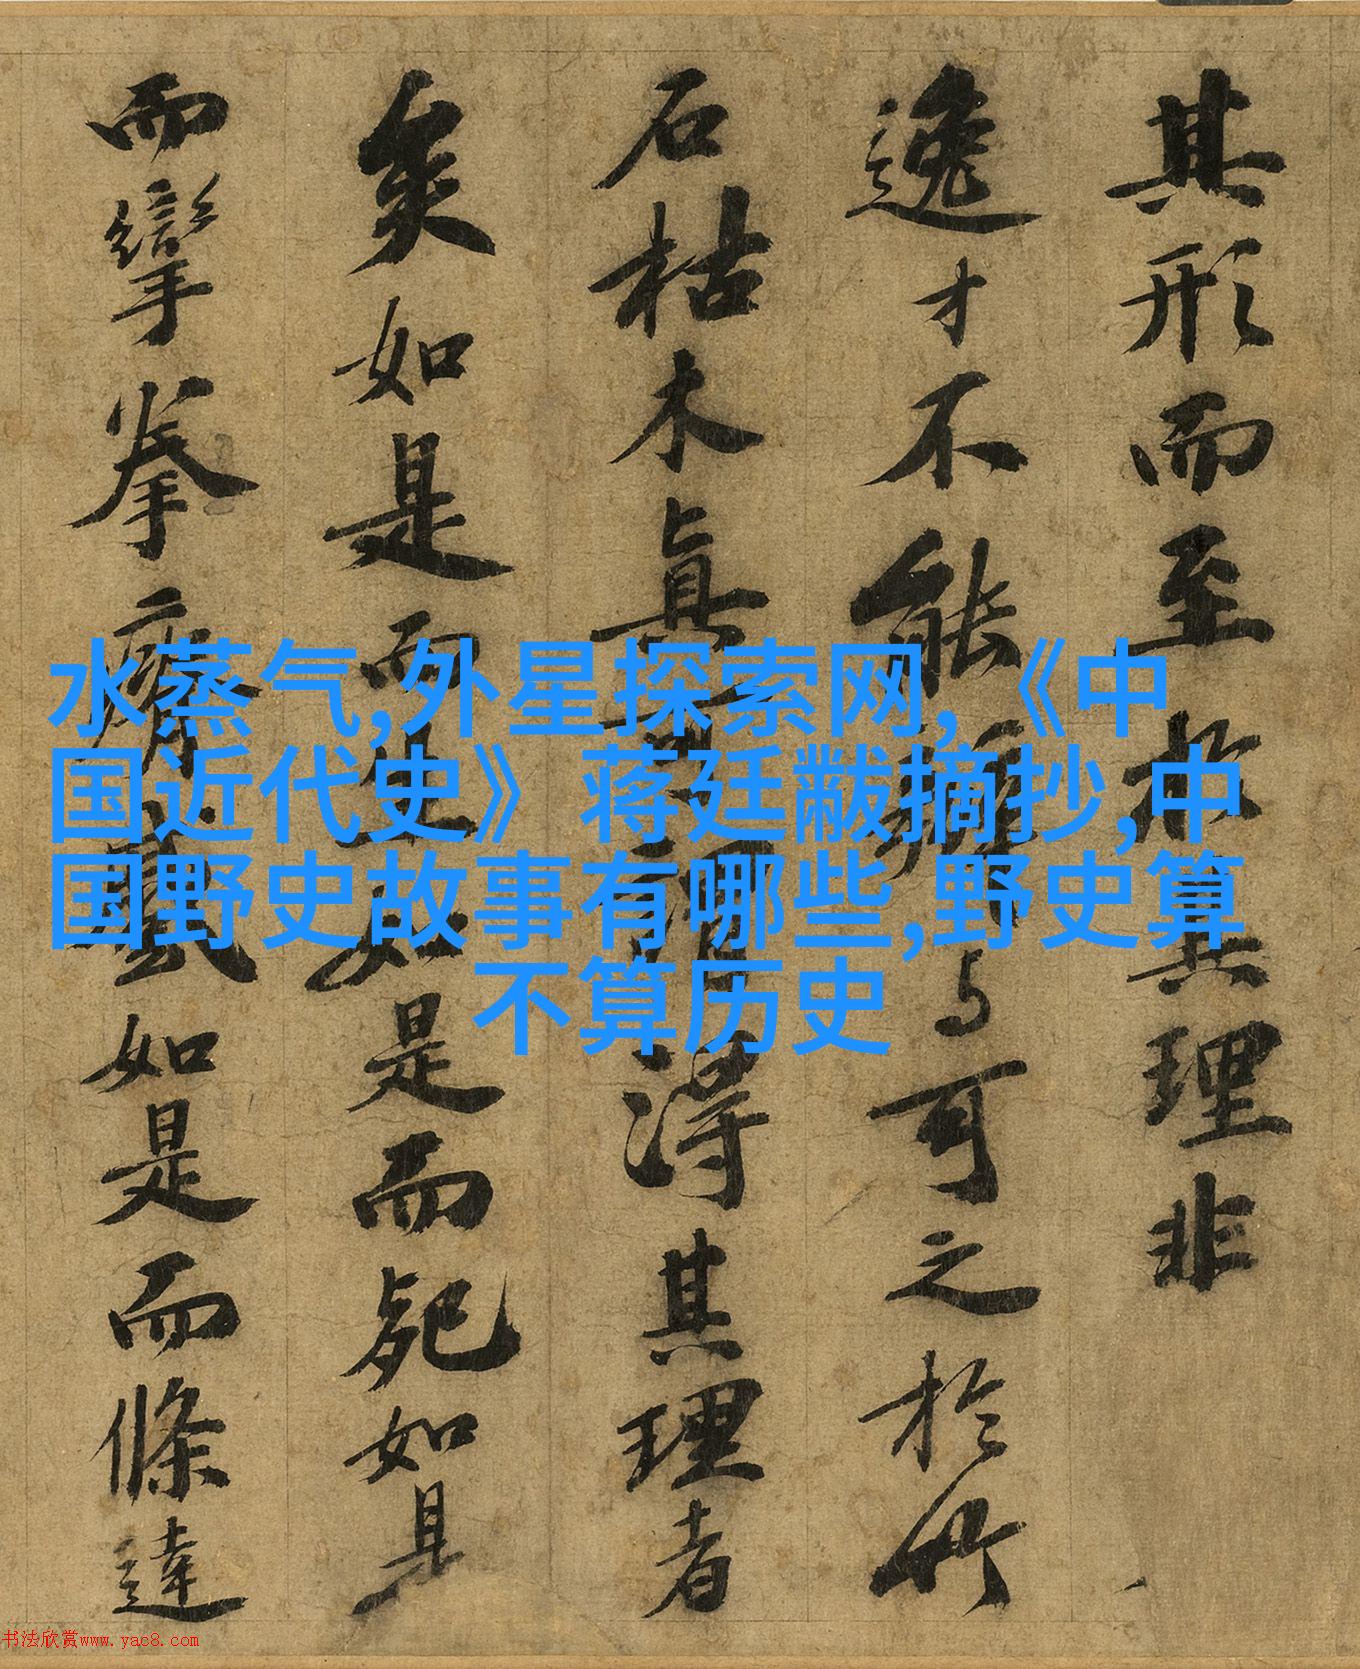 其形而至於其理非
逸才不能辨与可之於竹
石枯木真得其理者
矣如是而生如是而死如是
而攣拳瘠蹙如是而條達
水蒸气,外星探索网,《中
国近代史》蒋廷黻摘抄,中
国野史故事有哪些,野史算
不算历史
书法欣赏www.yac8.com